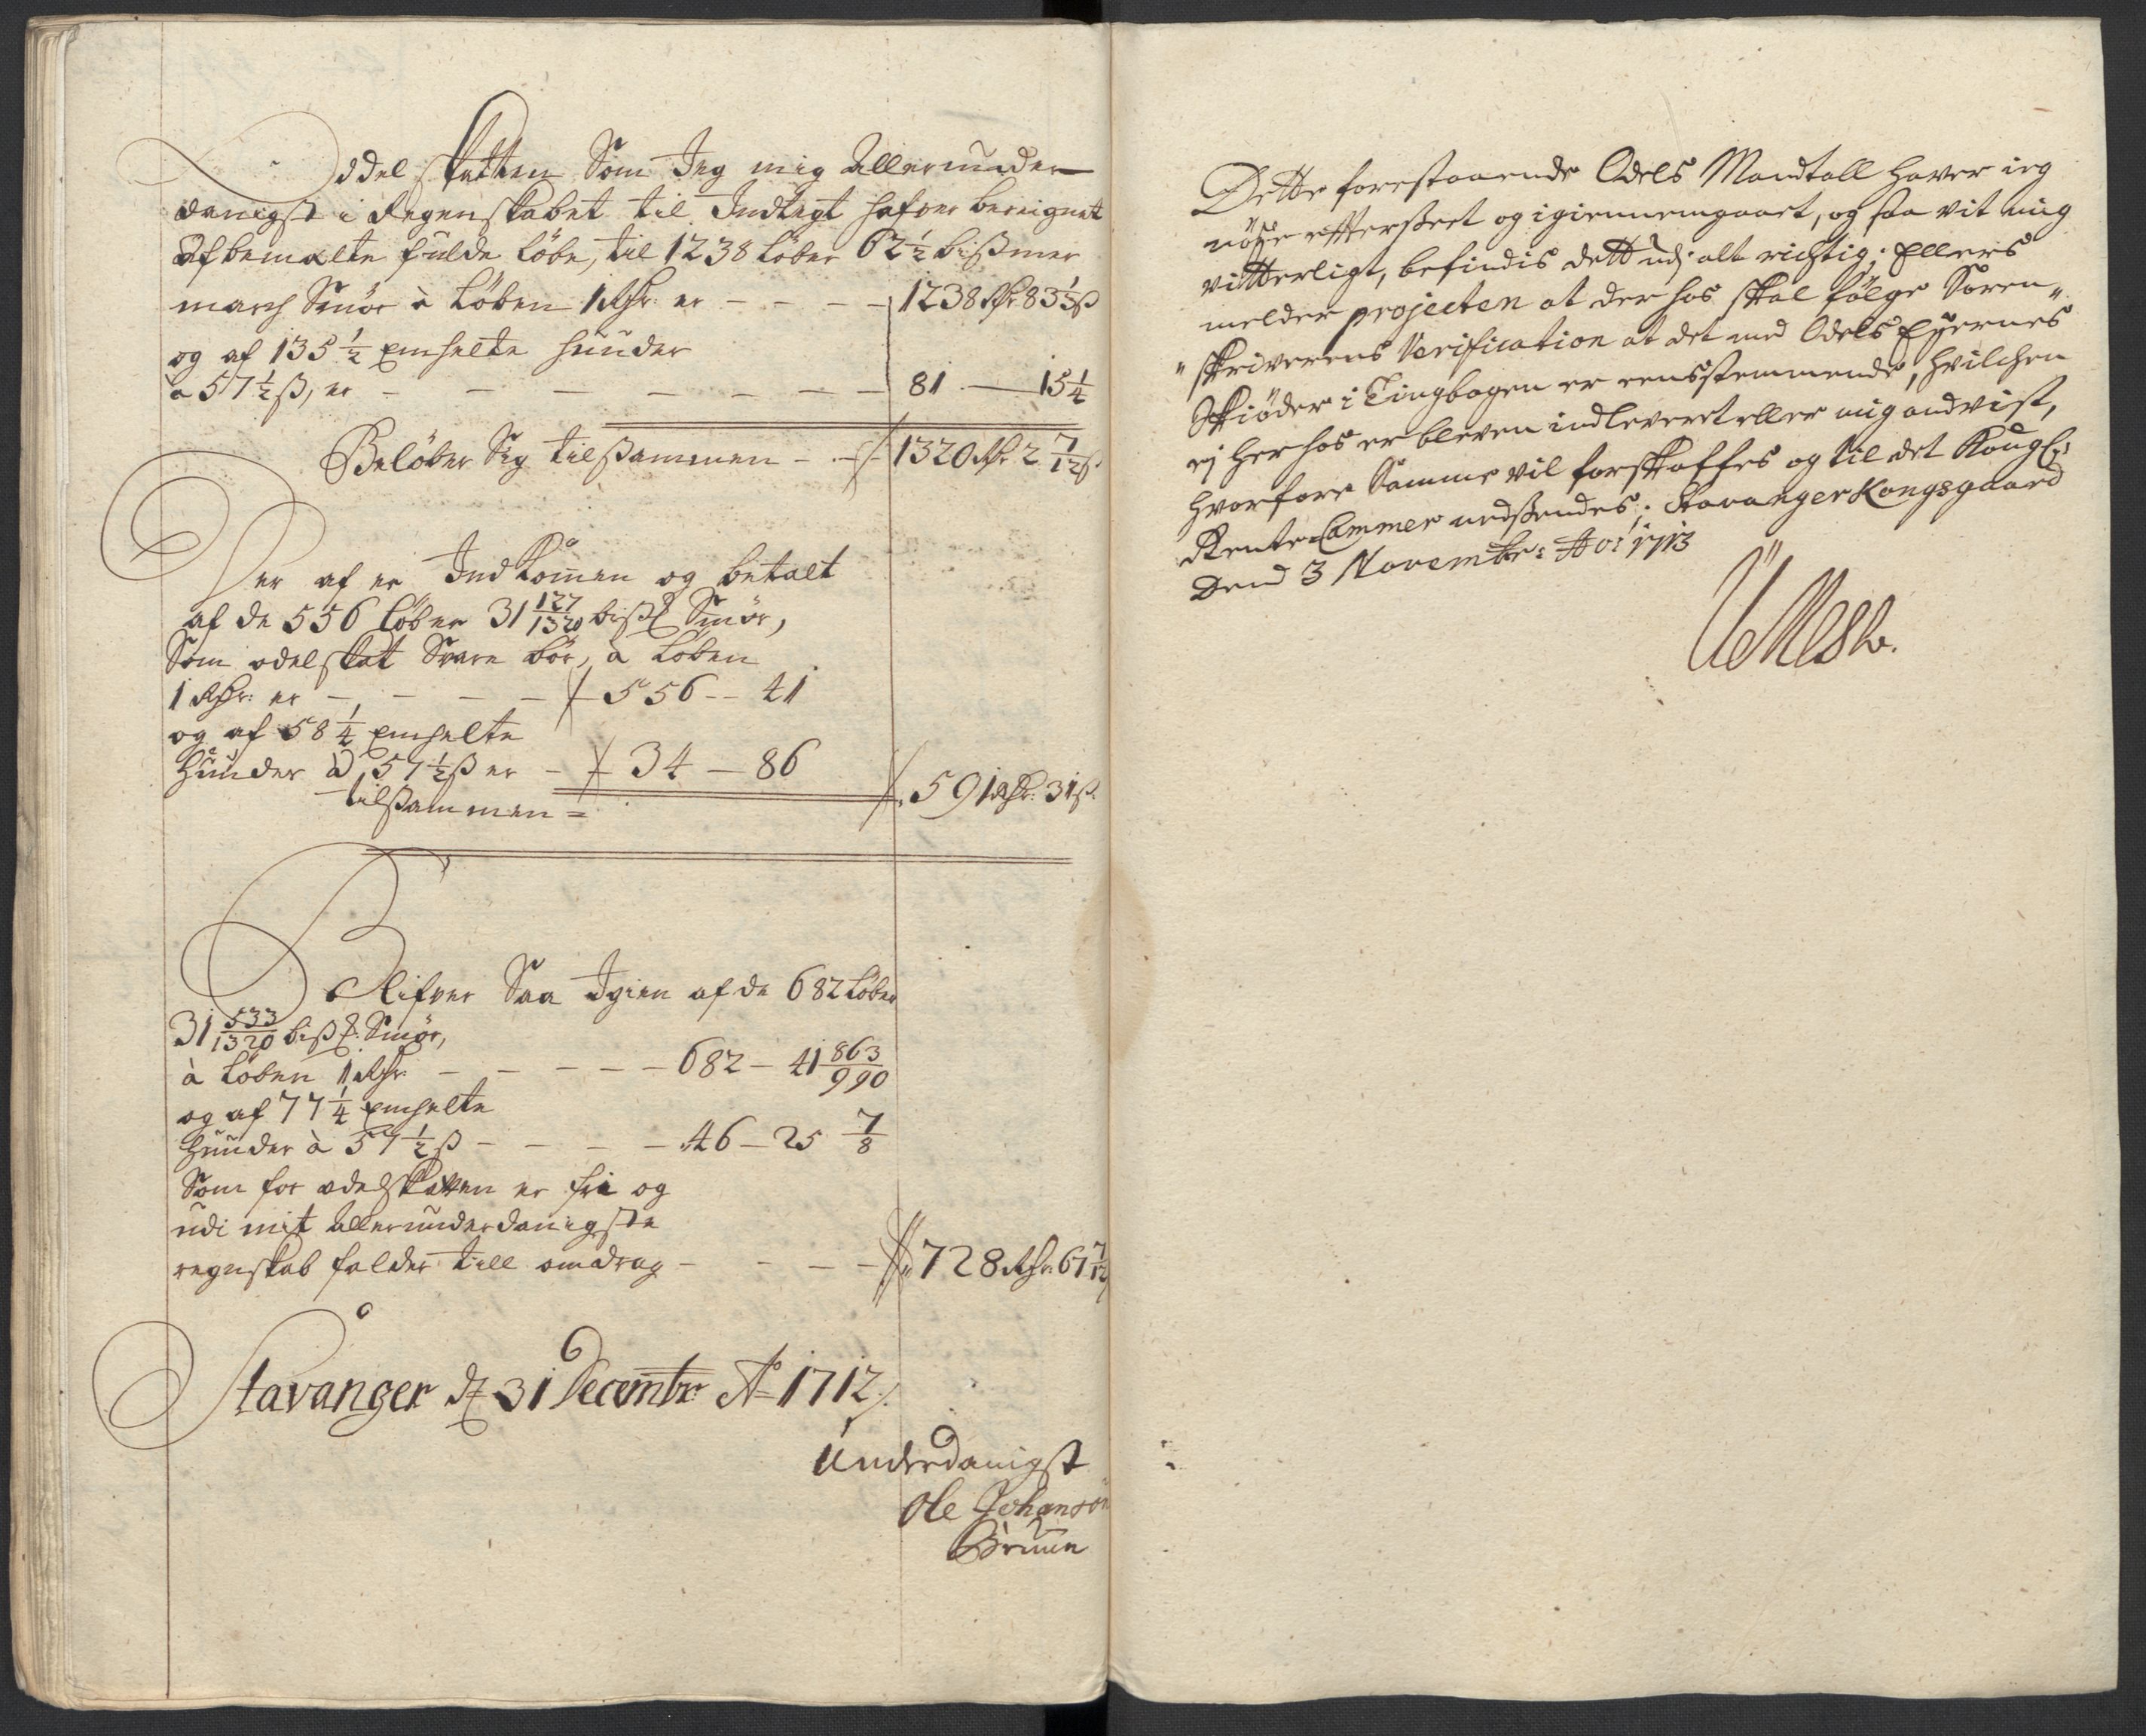 Oddel Skatten Som Jeg mig Allerunder-
danigst i Regenskabet til Indtegt hafver bereignet
Af bemælte fulde Løbe, til 1238 Løber 62½ bißmer
march Smör à Løben 1 Rdr: er - - - - 1238 Rdr 83⅓ ß
og af 135½ Emhelte huuder
à 57½ ß, er - - - - - - - 81 — 15¼
Beløber Sig tilßammen - - 1320 Rdr 2 7/12 ß
Her af er Indkommen og betalt
af de 556 Løber 31 127/1320 biß Smör,
Som odelskat Svare bör, à Løben
1 Rdr: er - - - - 556 -- 41
og af 58¼ Emhelte
Huuder à 57½ ß er - 34 — 86
tilßammen = 591 Rdr: 31 ß
Blifver Saa Igien af de 682 Løber
31 533/1320 biß Smör,
à Løben 1 Rdr - - - - - 682 — 41 863/990
og af 77¼ Emhelte
huuder à 57½ ß - - - - 46 — 25 7/8
Som for odelskatten er fri og
udi mit allerunderdanigste
regnskab falder till omdrag - - - - 728 Rdr: 67 7/12
Stavanger d 31 Decembr: Ao 1712
Underdanigst
Ole Johansön
Bruun
Dette forestaaende Odels Mandtall haver ieg
nöÿe effterßeet og igiennemgaaet, og saa vit mig
vitterligt, befindis dett udj alt richtig; Ellers
melder projecten at der hos skal fölge Soren„
„skriverens Verification at det med Odels Eyernes
Skiöder i Tingbogen er eensstemmende, hvilchen
ej herhos er bleven indleveret eller mig andvist,
hvorfore Samme vil forskaffes og til det Kongl:
Rente-Cammer nedßendes; Stavanger Kongsgaard
Dend 3 Novembr: Ao: 1713